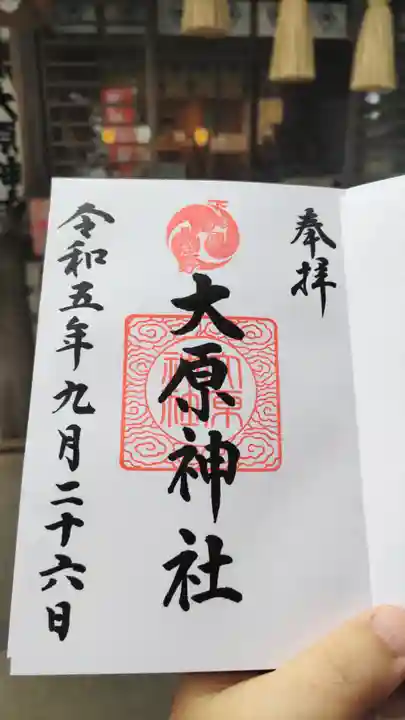 奉拝
大原神社
大原
神社
令和五年九月二十六日